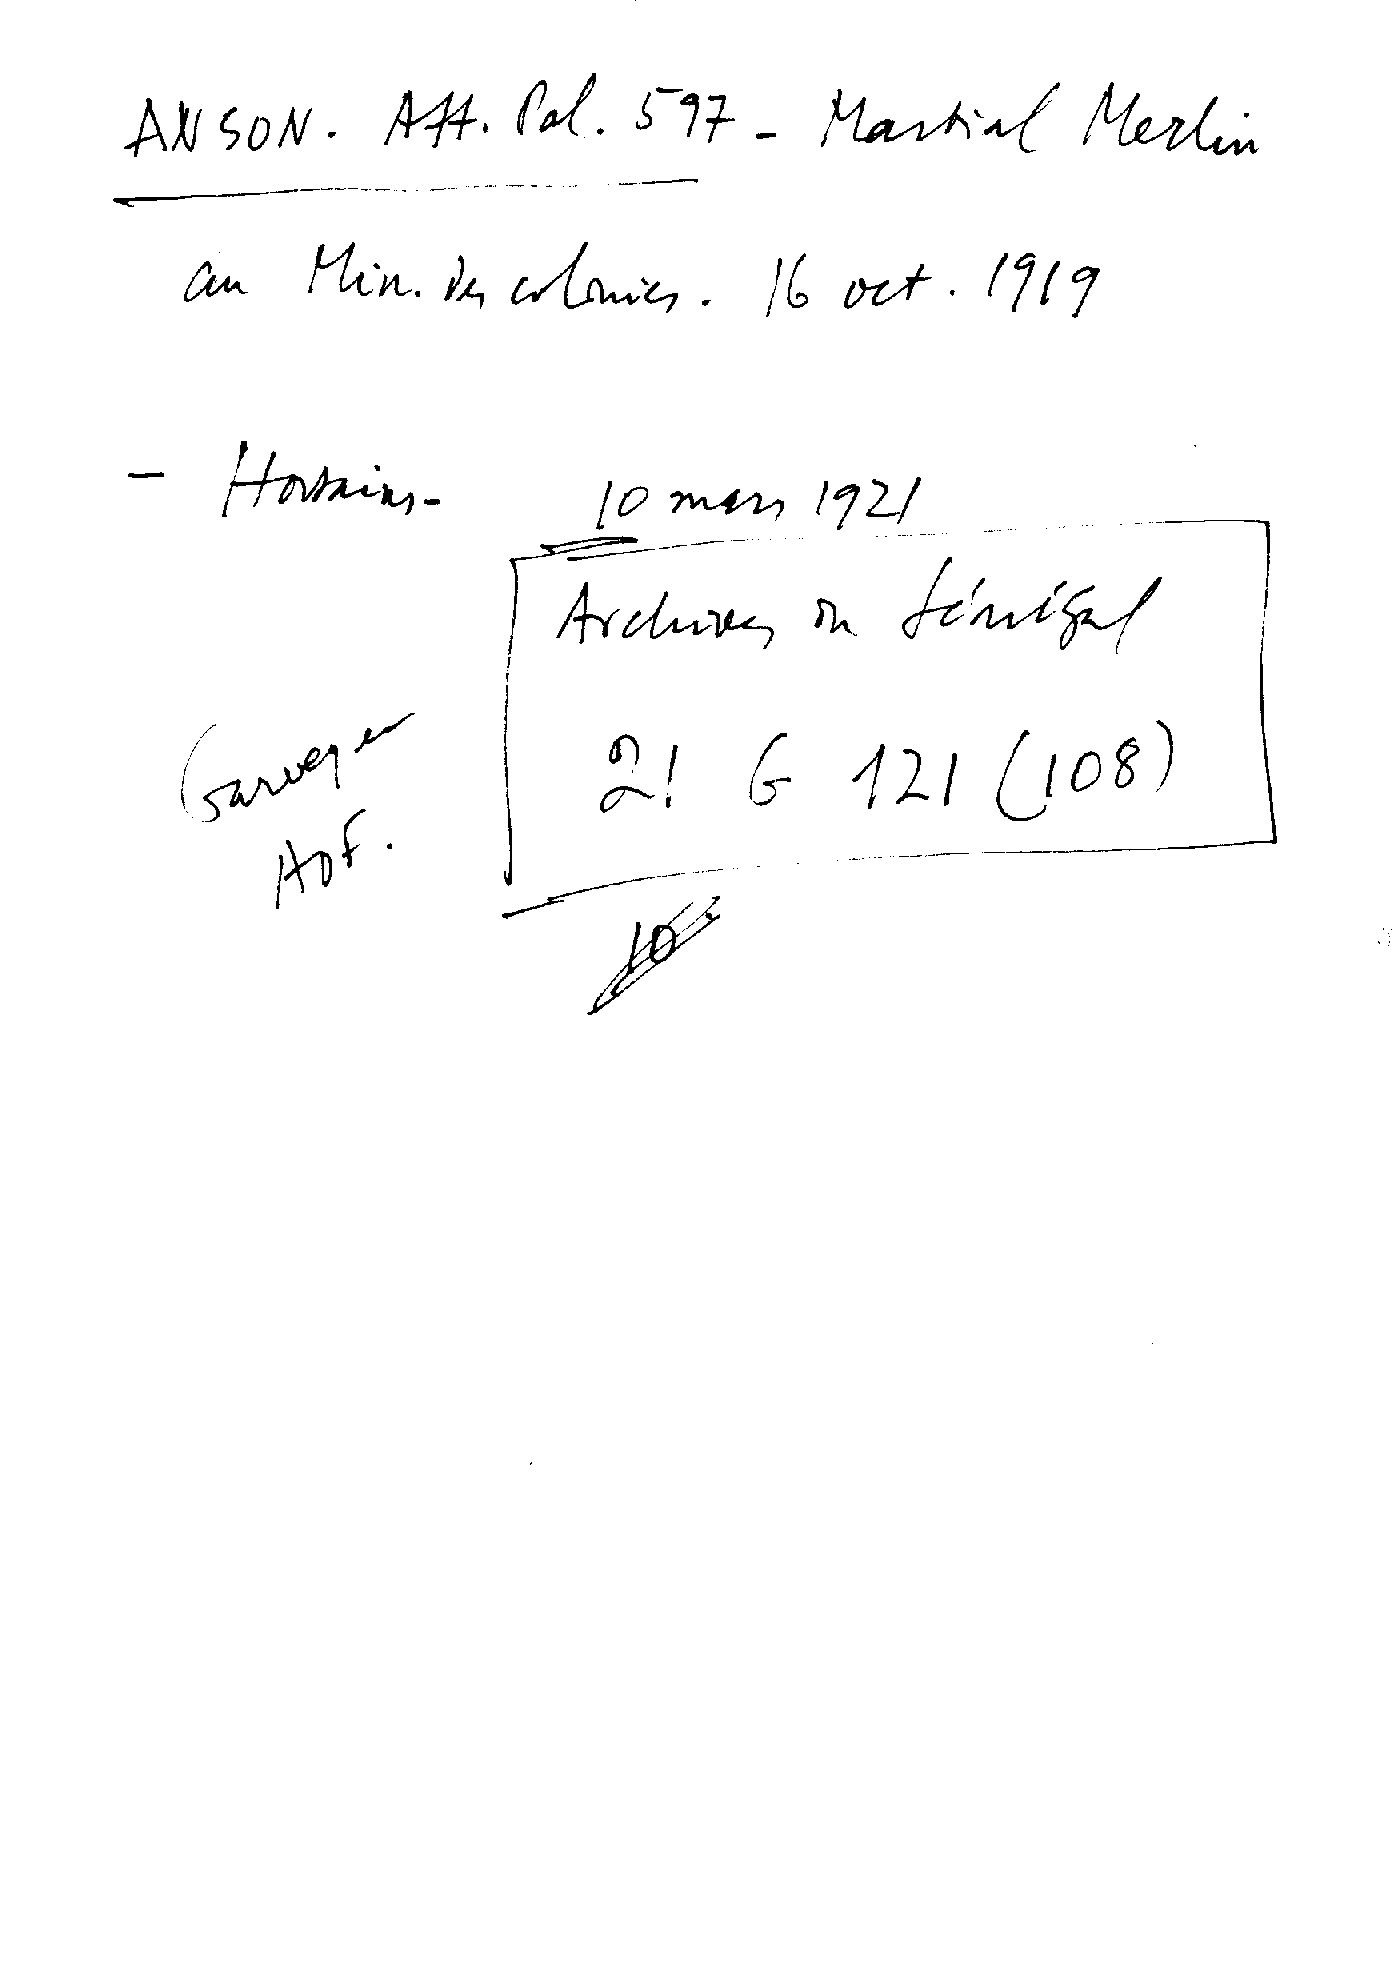 ANSON. Aff. Pol. 597 - Martial Merlin
au Min. des colonies. 16 oct. 1919
-
10 mars 1921
Archives du Sénégal
21 G 121 (108)
Garvey en
AOF.
10